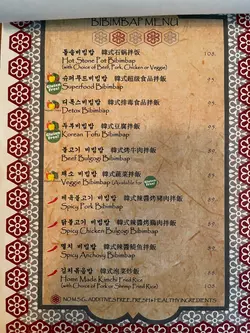 BIBIMBAP MENU
돌솥비빔밥 韓式石鍋拌飯
Hot Stone Pot Bibimbap
(with Choice of Beef, Pork, Chicken or Veggie)
슈퍼푸드비빔밥 韓式超級食品拌飯
Superfood Bibimbap
디톡스비빔밥 韓式排毒食品拌飯
Detox Bibimbap
두부비빔밥 韓式豆腐拌飯
Korean Tofu Bibimbap
불고기 비빔밥 韓式烤牛肉拌飯
Beef Bulgogi Bibimbap
채소 비빔밥 韓式蔬菜拌飯
Veggie Bibimbap (Available for
제육불고기 비빔밥 韓式辣醬烤豬肉拌飯
Spicy Pork Bibimbap
닭불고기 비빔밥 韓式辣醬烤雞肉拌飯
Spicy Chicken Bulgogi Bibimbap
멸치 비빔밥 韓式辣醬鯷魚拌飯
Spicy Anchovy Bibimbap
김치볶음밥 韓式泡菜炒飯
Home Made Kimchi Fried Rice
(with Choice of Pork or Shrimp Fried Rice)
NO M.S.G., ADDITIVES FREE, FRESH & HEALTHY INGREDIENTS